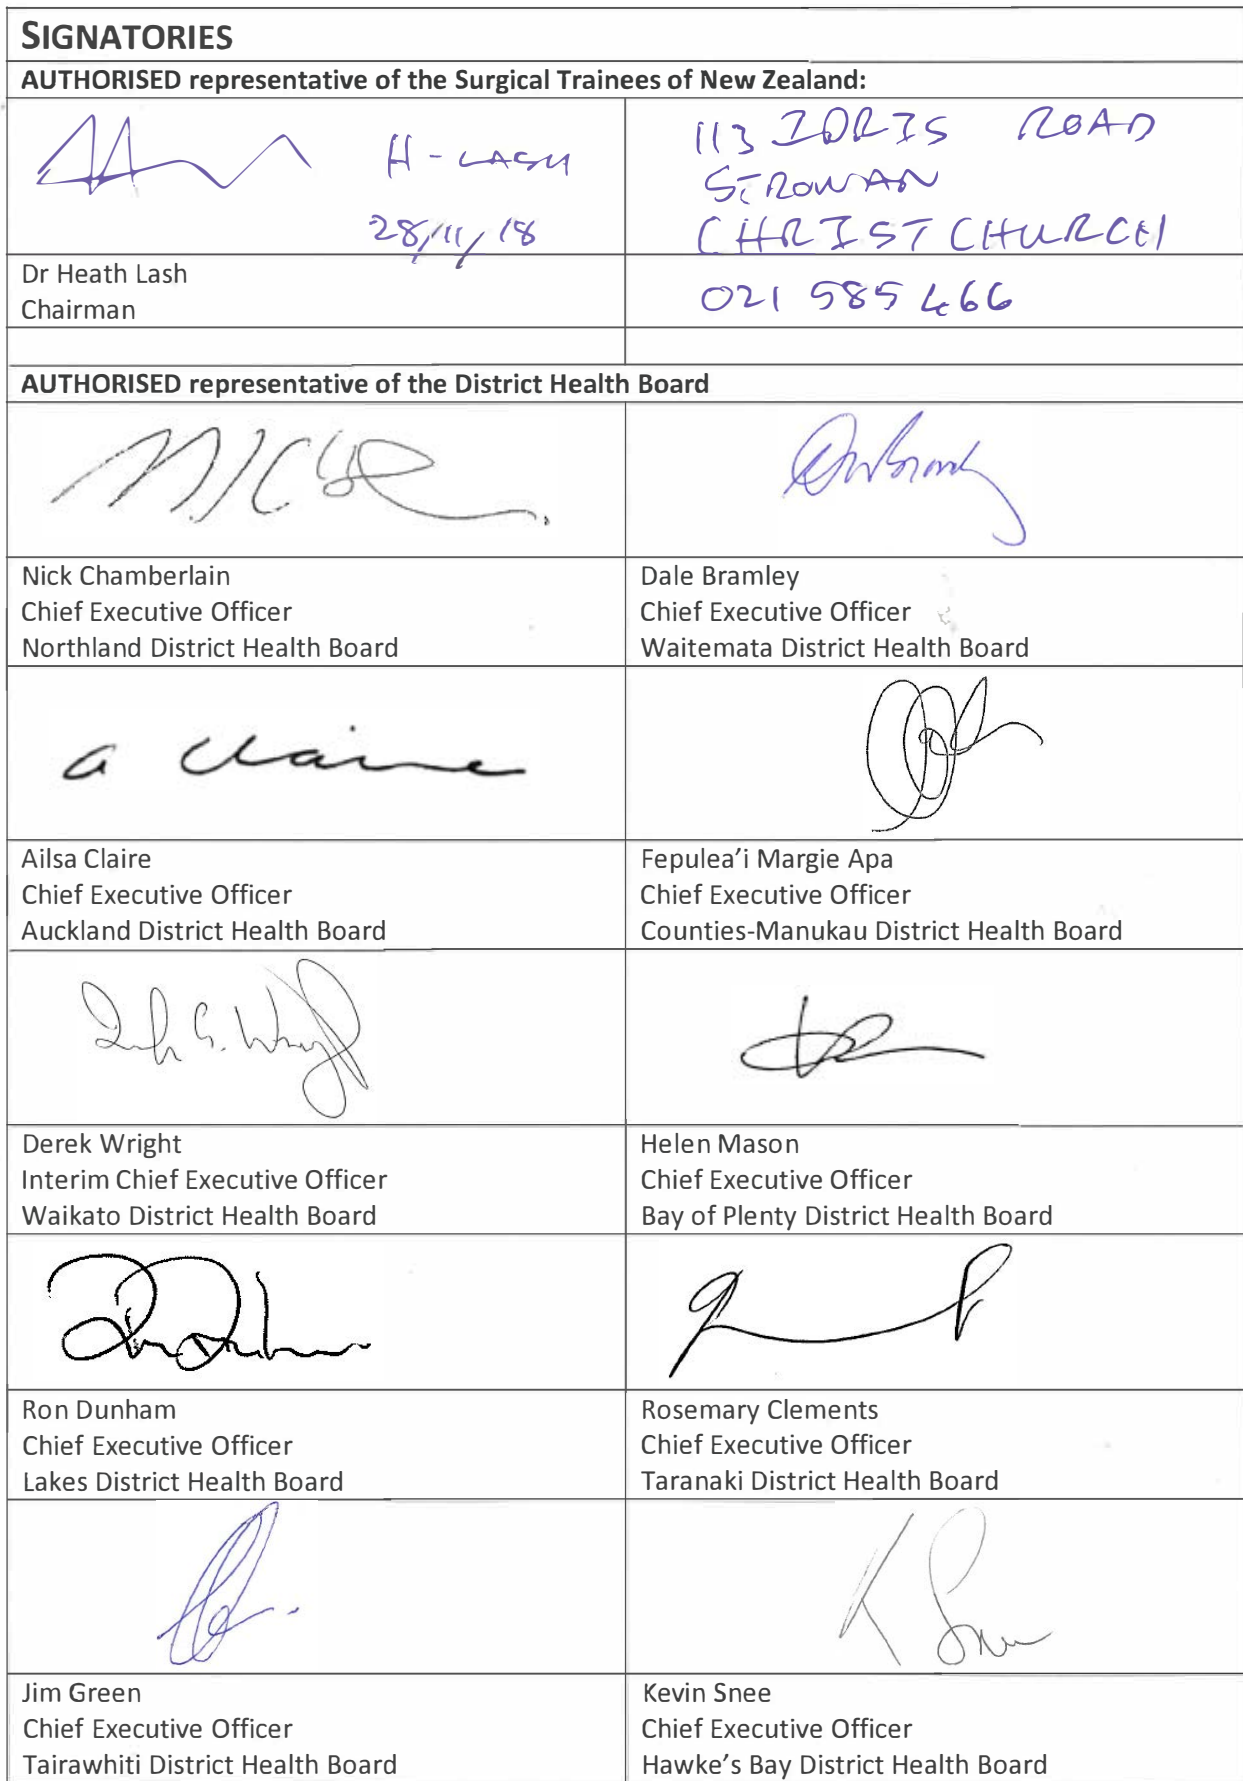 SIGNATORIES
AUTHORISED representative of the Surgical Trainees of New Zealand:
H - LASH
28/11/18
113 IDRIS ROAD
STROWAN
CHRISTCHURCH
Dr Heath Lash
Chairman
021 585 466
AUTHORISED representative of the District Health Board
Nick Chamberlain
Chief Executive Officer
Northland District Health Board
Dale Bramley
Chief Executive Officer
Waitemata District Health Board
a Claire
Ailsa Claire
Chief Executive Officer
Auckland District Health Board
Fepulea'i Margie Apa
Chief Executive Officer
Counties-Manukau District Health Board
Derek Wright
Interim Chief Executive Officer
Waikato District Health Board
Helen Mason
Chief Executive Officer
Bay of Plenty District Health Board
Ron Dunham
Chief Executive Officer
Lakes District Health Board
Rosemary Clements
Chief Executive Officer
Taranaki District Health Board
K Snee
Jim Green
Chief Executive Officer
Tairawhiti District Health Board
Kevin Snee
Chief Executive Officer
Hawke's Bay District Health Board